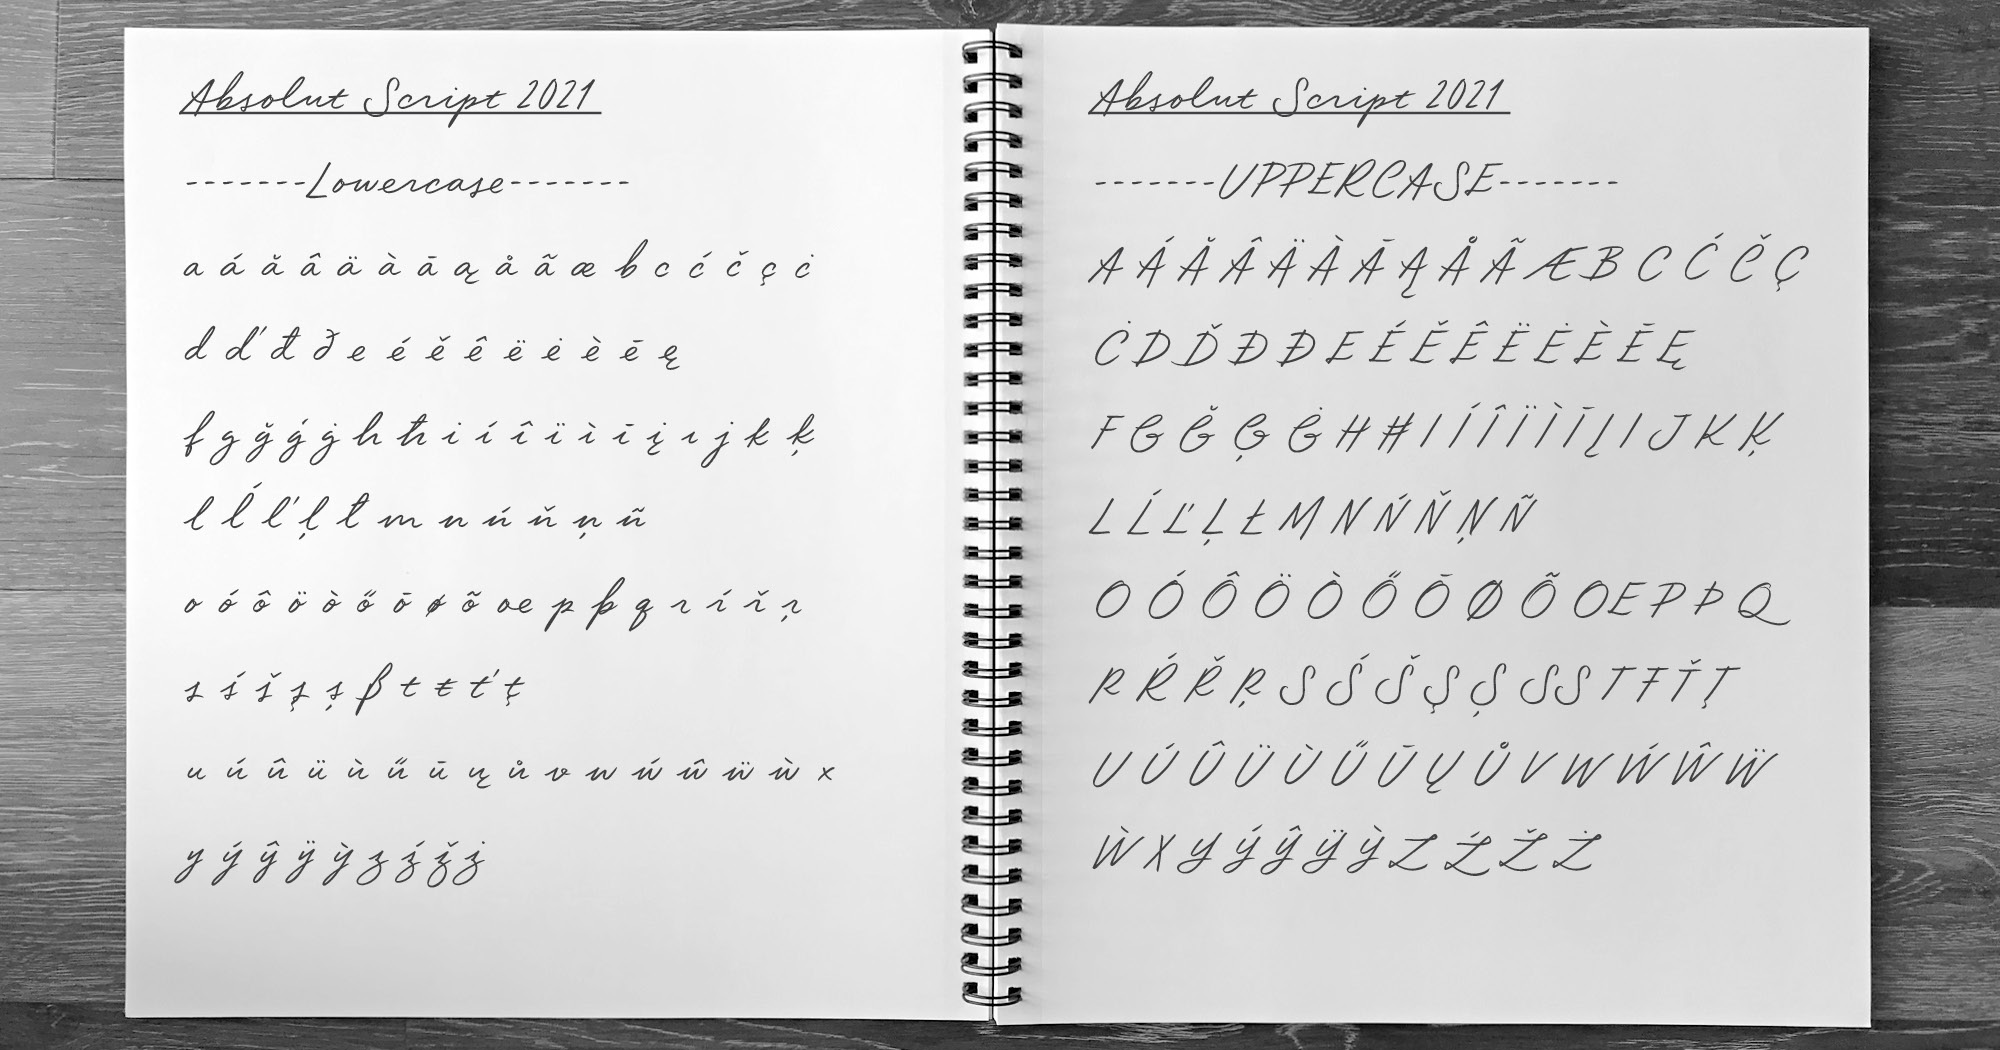 Absolut Script 2021
-------Lowercase-------
a á ă â ä à ā ą å ã æ b c ć č ç ċ
d ď đ ð e é ě ê ë ė è ē ę
f g ğ ǵ ġ h ħ i í î ï ì ī į ı j k ķ
l ĺ ľ ļ ł m n ń ň ņ ñ
o ó ô ö ò ő ō ø õ œ p þ q r ŕ ř ŗ
s ś š ş ș ß t ŧ ť ţ
u ú û ü ù ű ū ų ů v w ẃ ŵ ẅ ẁ x
y ý ŷ ÿ ỳ z ź ž ż
Absolut Script 2021
-------UPPERCASE-------
A Á Ă Â Ä À Ā Ą Å Ã Æ B C Ć Č Ç
Ċ D Ď Đ Ð E É Ě Ê Ë Ė È Ē Ę
F G Ğ Ģ Ġ H Ħ I Í Î Ï Ì Ī Į I J K Ķ
L Ĺ Ľ Ļ Ł M N Ń Ň Ņ Ñ
O Ó Ô Ö Ò Ő Ō Ø Õ Œ P Þ Q
R Ŕ Ř Ŗ S Ś Š Ş Ș SS T Ŧ Ť Ţ
U Ú Û Ü Ù Ű Ū Ų Ů V W Ẃ Ŵ Ẅ
Ẁ X Y Ý Ŷ Ÿ Ỳ Z Ź Ž Ż